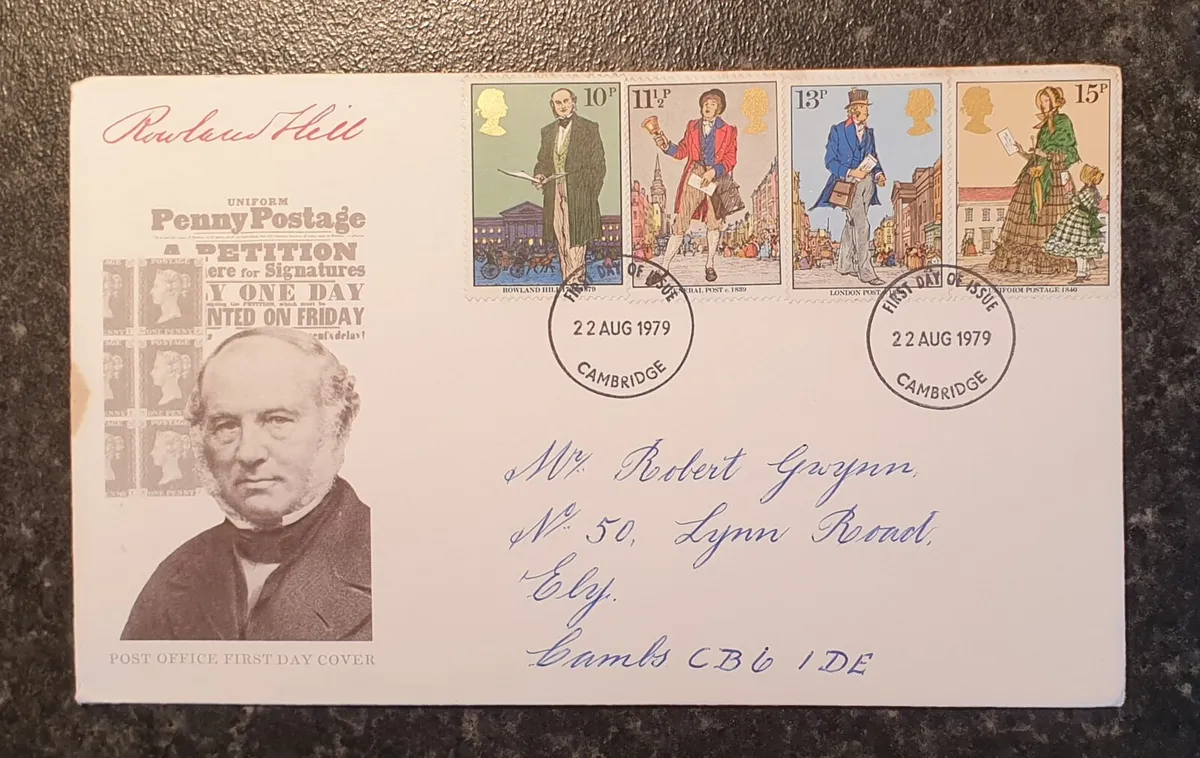 Rowland Hill
UNIFORM
Penny Postage
A PETITION
ere for Signatures
Y ONE DAY
NTED ON FRIDAY
POSTAGE
ONE PENNY
POSTAGE
ONE PENNY
POSTAGE
ONE PENNY
POST OFFICE FIRST DAY COVER
10P
ROWLAND HILL
11½P
GENERAL POST c. 1839
13P
LONDON POST
15P
UNIFORM POSTAGE 1840
FIRST DAY OF ISSUE
22 AUG 1979
CAMBRIDGE
FIRST DAY OF ISSUE
22 AUG 1979
CAMBRIDGE
Mr. Robert Gwynn,
No. 50, Lynn Road,
Ely.
Cambs CB6 1DE